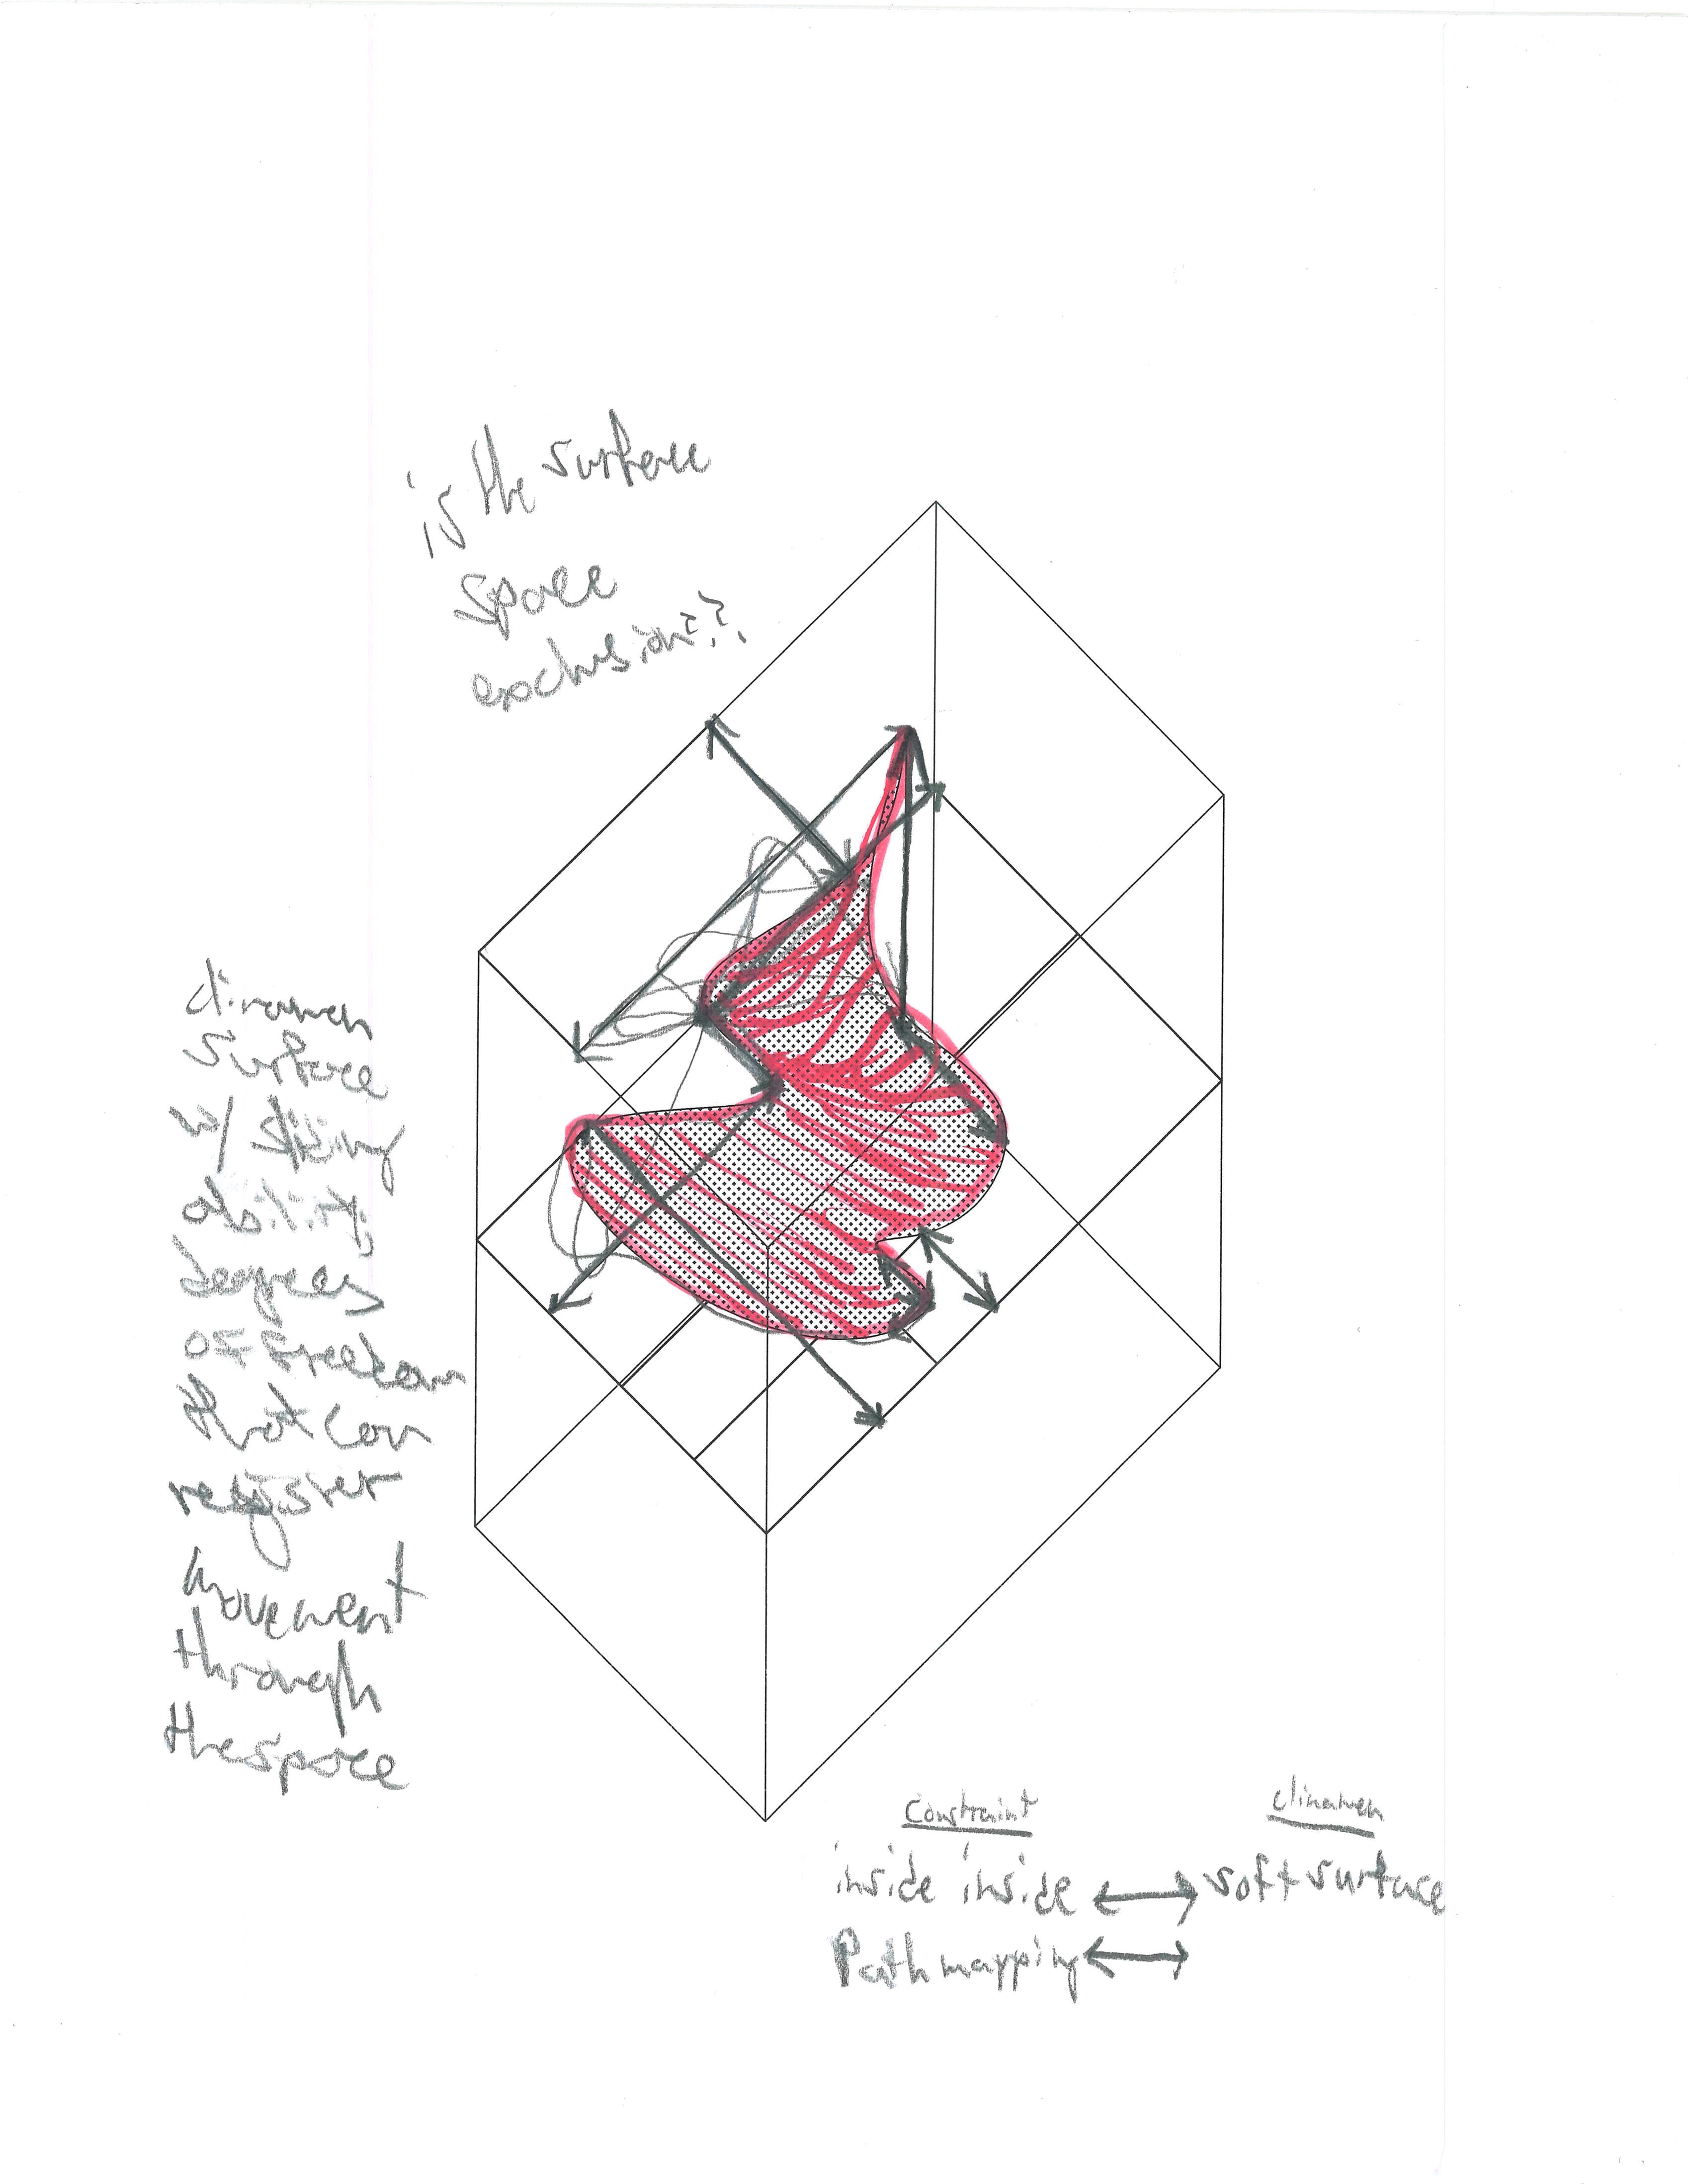 is the surface
space
exclusion??.
clinamen
surface
w/
ability
degrees
of freedom
that can
register
movement
through
the space
Constraint clinamen
inside inside ⟷ soft surface
Path mapping ⟷